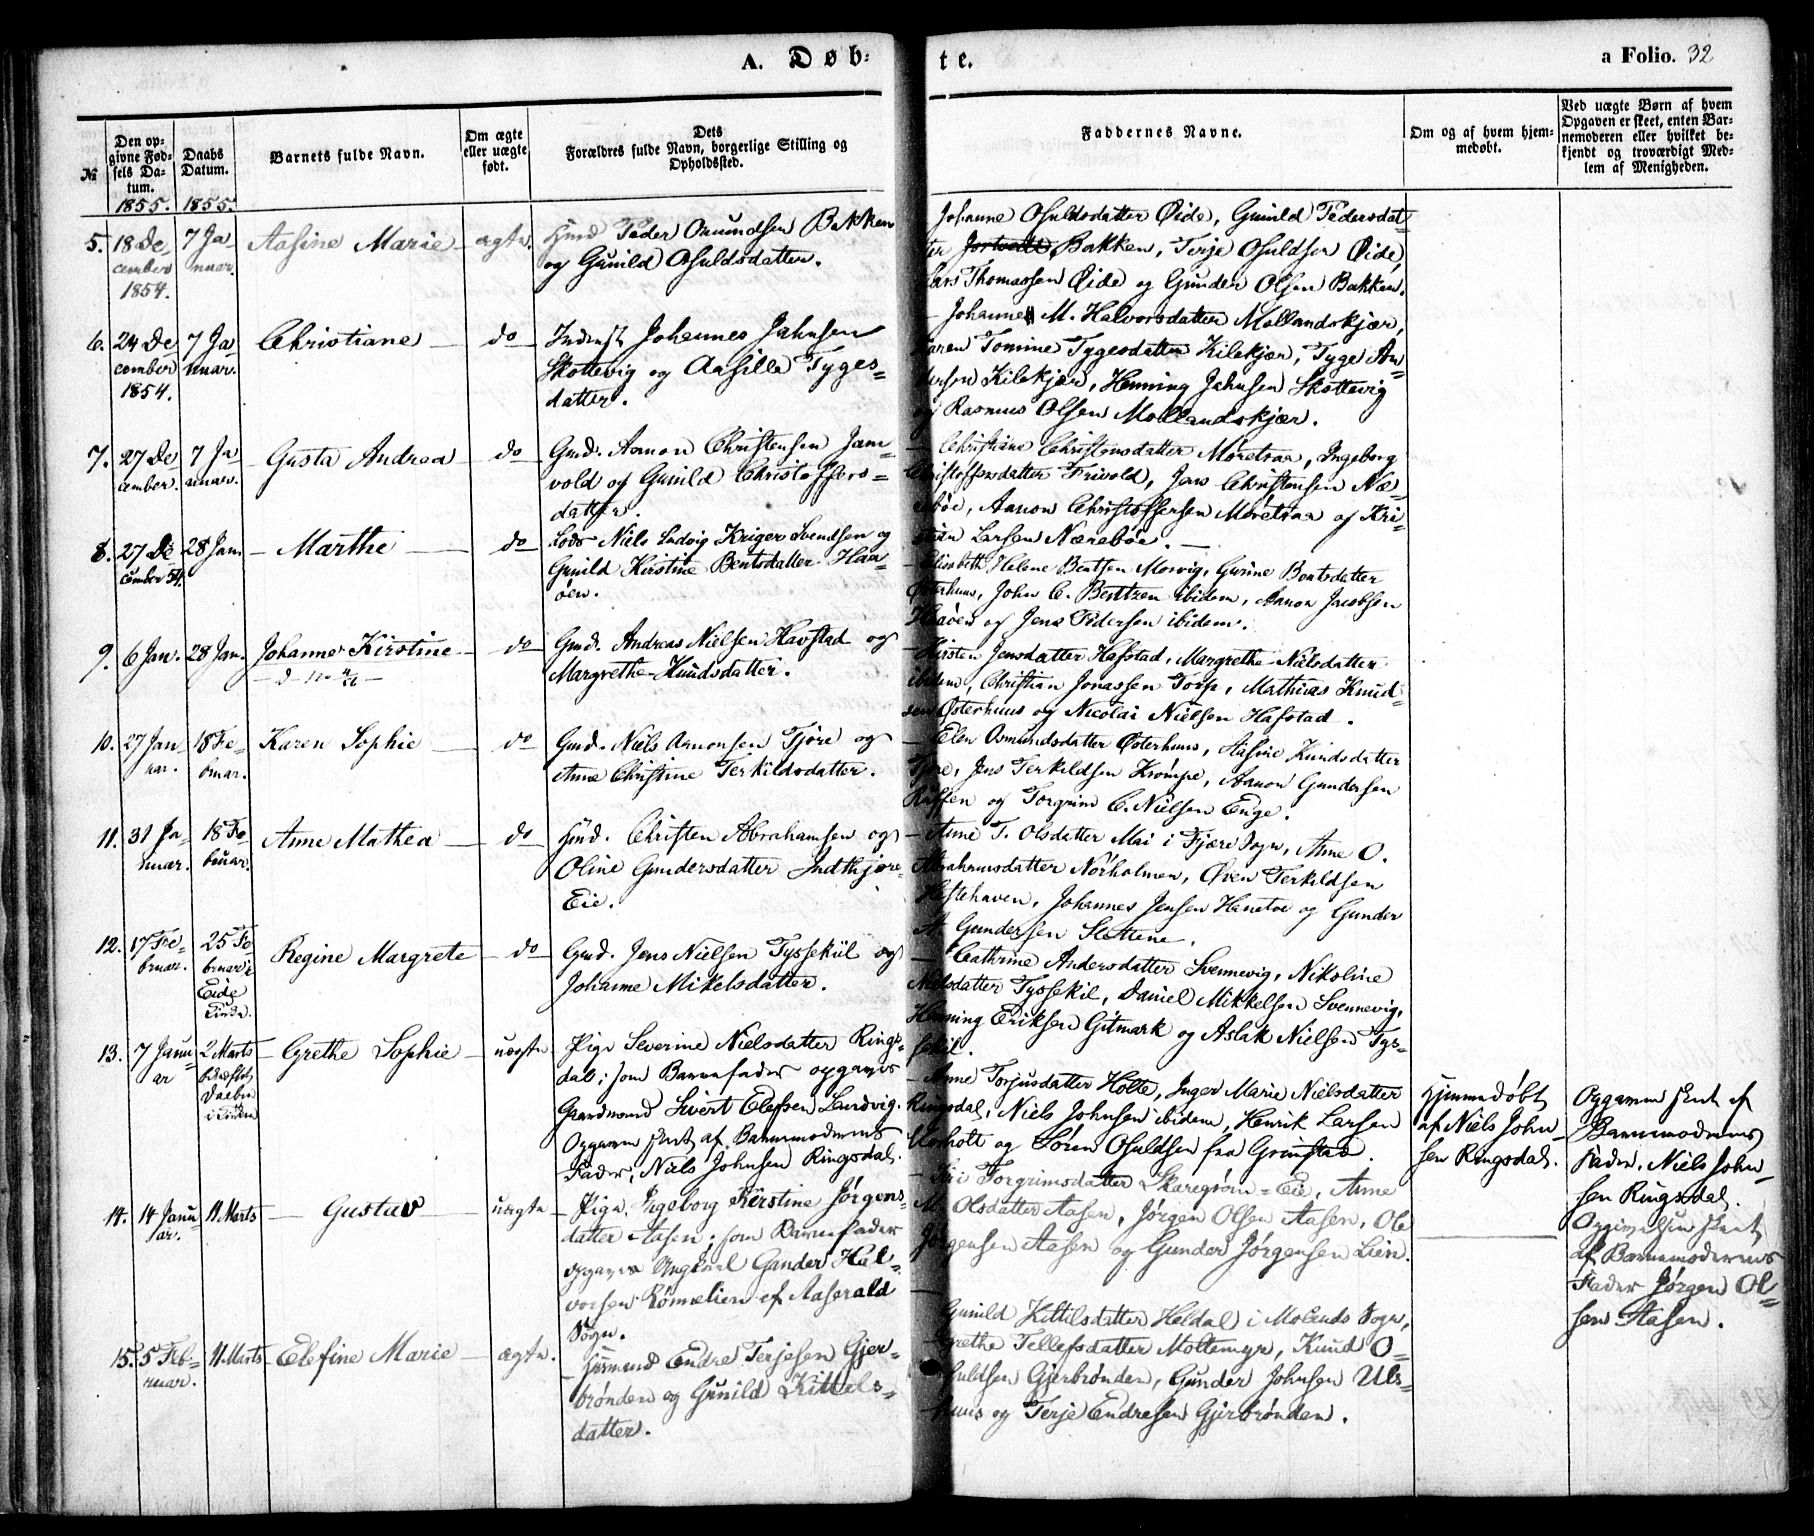 A. Døb-
te.
a Folio. 32
№
Den opgivne Fødsels Datum.
1855.
Daabs Datum.
1855.
Barnets fulde Navn.
Om ægte eller uægte født.
Dets Forældres fulde Navn, borgerlige Stilling og Opholdssted.
Faddernes Navne.
Om og af hvem hjemmedøbt.
Ved uægte Børn af hvem Opgaven er skeet, enten Barnemoderen eller hvilket bekjendt og troværdigt Medlem af Menigheden.
5. 18 December 1854. 7 Januar. Aasine Marie ægte.
Huusmd Peder Omundsen Bakken
og Gunild Osuldsdatter.
Johanne Osuldsdatter Øide, Gunild Pedersdat
ter Bakken, Terje Osuldsen Øide,
Lars Thomassen Øide og Gunder Olsen Bakken.
6. 24 December 1854. 7 Januar. Christiane do
Inderst Johannes Jahnsen
Skottevig og Aasille Tyges-
datter.
Johanne M. Halvorsdatter Mollandskjær,
Karen Tomine Tygesdatter Kilekjær, Tyge An-
dersen Kilekjær, Henning Jahnsen Skottevig
og Rasmus Olsen Mollandskjær.
7. 27 December. 7 Januar. Gusta Andrea do
Gmd. Aanon Christensen Jam
vold og Gunild Christoffers-
datter.
Christiane Christensdatter Moretraa, Ingeborg
Christoffersdatter Frivold, Jens Christensen Næ-
rebøe, Aanon Christoffersen Moretraa og Kri-
stian Larsen Nærebøe.
8. 27 December 54. 28 Jan. Marthe do
Lods Niels Ludvig Kriger Svendsen og
Gunild Kirstine Bentsdatter Haa-
øen.
Elisabeth Helene Bentsen Morvig, Gurine Bentsdatter
Østerhuus, John C. Bentzen ibidem, Aanon Jacobsen
Haaøen og Jens Pedersen ibidem.
9. 6 Jan. 28 Jan. Johanne Kirstine do
Gmd. Andreas Nielsen Havstad og
Margrethe Knudsdatter.
Kirsten Jensdatter Hafstad, Margrethe Nielsdatter
ibidem, Christian Jonassen Torp, Mathias Knud-
sen Østerhuus og Nicolai Nielsen Hafstad.
10. 27 Januar. 18 Februar. Karen Sophie do
Gmd. Niels Aanonsen Tjøre og
Anne Christine Terkildsdatter.
Elen Osmundsdatter Østerhuus, Aasne Knudsdatter
Tjøre, Jens Terkildsen Krømpe, Aanon Gundersen
og Torgrim C. Nielsen Enge.
11. 31 Januar. 18 Februar. Anne Mathea do
Hmd. Christen Abrahamsen og
Oline Gundersdatter Indthjøre-
Eie.
Anne T. Olsdatter Mai i Fjære Sogn, Anne O.
Abrahamsdatter Nørholmen, Øven Terkildsen
Hestehaven, Johannes Jensen Hanetoe og Gunder
A. Gundersen Slottene.
12. 17 Februar. 25 Februar i Eide Kirke. Regine Margrete do
Gmd. Jens Nielsen Tyssekiil og
Johanne Mikelsdatter.
Cathrine Andersdatter Svennevig, Nikoline
Nielsdatter Tyssekil, Daniel Mikkelsen Svennevig,
Henning Eriksen Gitmark og Aslak Nielsen Tys-
sekil.
13. 7 Januar 2 Marts Daaben i Kirken Grethe Sophie uægte
Pige Severine Nielsdatter Rings-
dal; som Barnefader opgaves
Grandmand Sivert Elefsen Lundvig.
Opgaven skeet af Barnemoderens
Fader, Niels Johnsen Ringsdal.
Anne Torjusdatter Holte, Inger Marie Nielsdatter
Ringsdal, Niels Johnsen ibidem, Henrik Larsen
og Søren Osuldsen fra Grimstad.
Hjemmedøbt
af Niels John-
sen Ringsdal.
Opgaven skeet af
Barnemoderens
Fader, Niels John-
sen Ringsdal.
14. 14 Januar. 11 Marts Gustav uægte
Pige Ingeborg Kirstine Jørgens-
datter Aasen; som Barnefader
opgaves Ungkarl Gunder Hal-
vorsen Rømelien af Aaserald
Sogn.
Siri Torgrimsdatter Skaregrøm-Eie, Anne
M. Olsdatter Aasen, Jørgen Olsen Aasen, Ole
Jørgensen Aasen og Gunder Jørgensen Lien.
Opgivelsen skeet
af Barnemoderens
Fader Jørgen Ol-
sen Aasen.
15. 5 Februar. 11 Marts Elefine Marie ægte.
Huusmand Endre Terjesen Gjer-
brønden og Gunild Kittels-
datter.
Gunild Kittilsdatter Heldal i Molands Sogn,
Grethe Tellefsdatter Moltemyr, Knud O-
suldsen Gjerbrønden, Gunder Johnsen Uls-
huus og Terje Endresen Gjerbrønden.